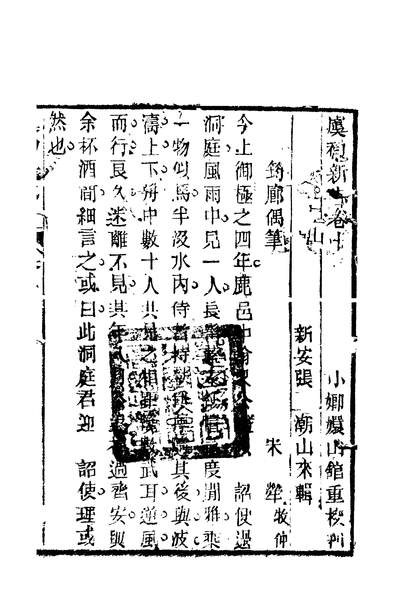 虞初新志卷十 小嫏嬛山館重校刊
新安張 潮山來輯
筠廊偶筆 宋 犖牧仲
今上御極之四年鹿邑中 詔使過
洞庭風雨中見一人長 度閒雅乘
一物似馬半沒水內侍者持 其後與波
濤上下舟中數十人共見之相 武耳逆風
而行良久迷離不見其年 過齊安與
余杯酒間細言之或曰此洞庭君迎 詔使理或
然也